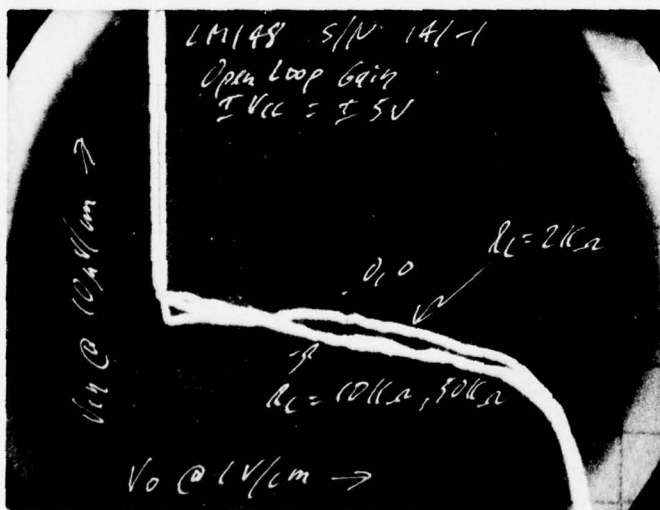 LM148 S/N 141-1
Open Loop Gain
± Vcc = ± 5V
Vin @ 10µV/cm →
RL = 2KΩ
0,0
RL = 10KΩ, 50KΩ
Vo @ 1V/cm →